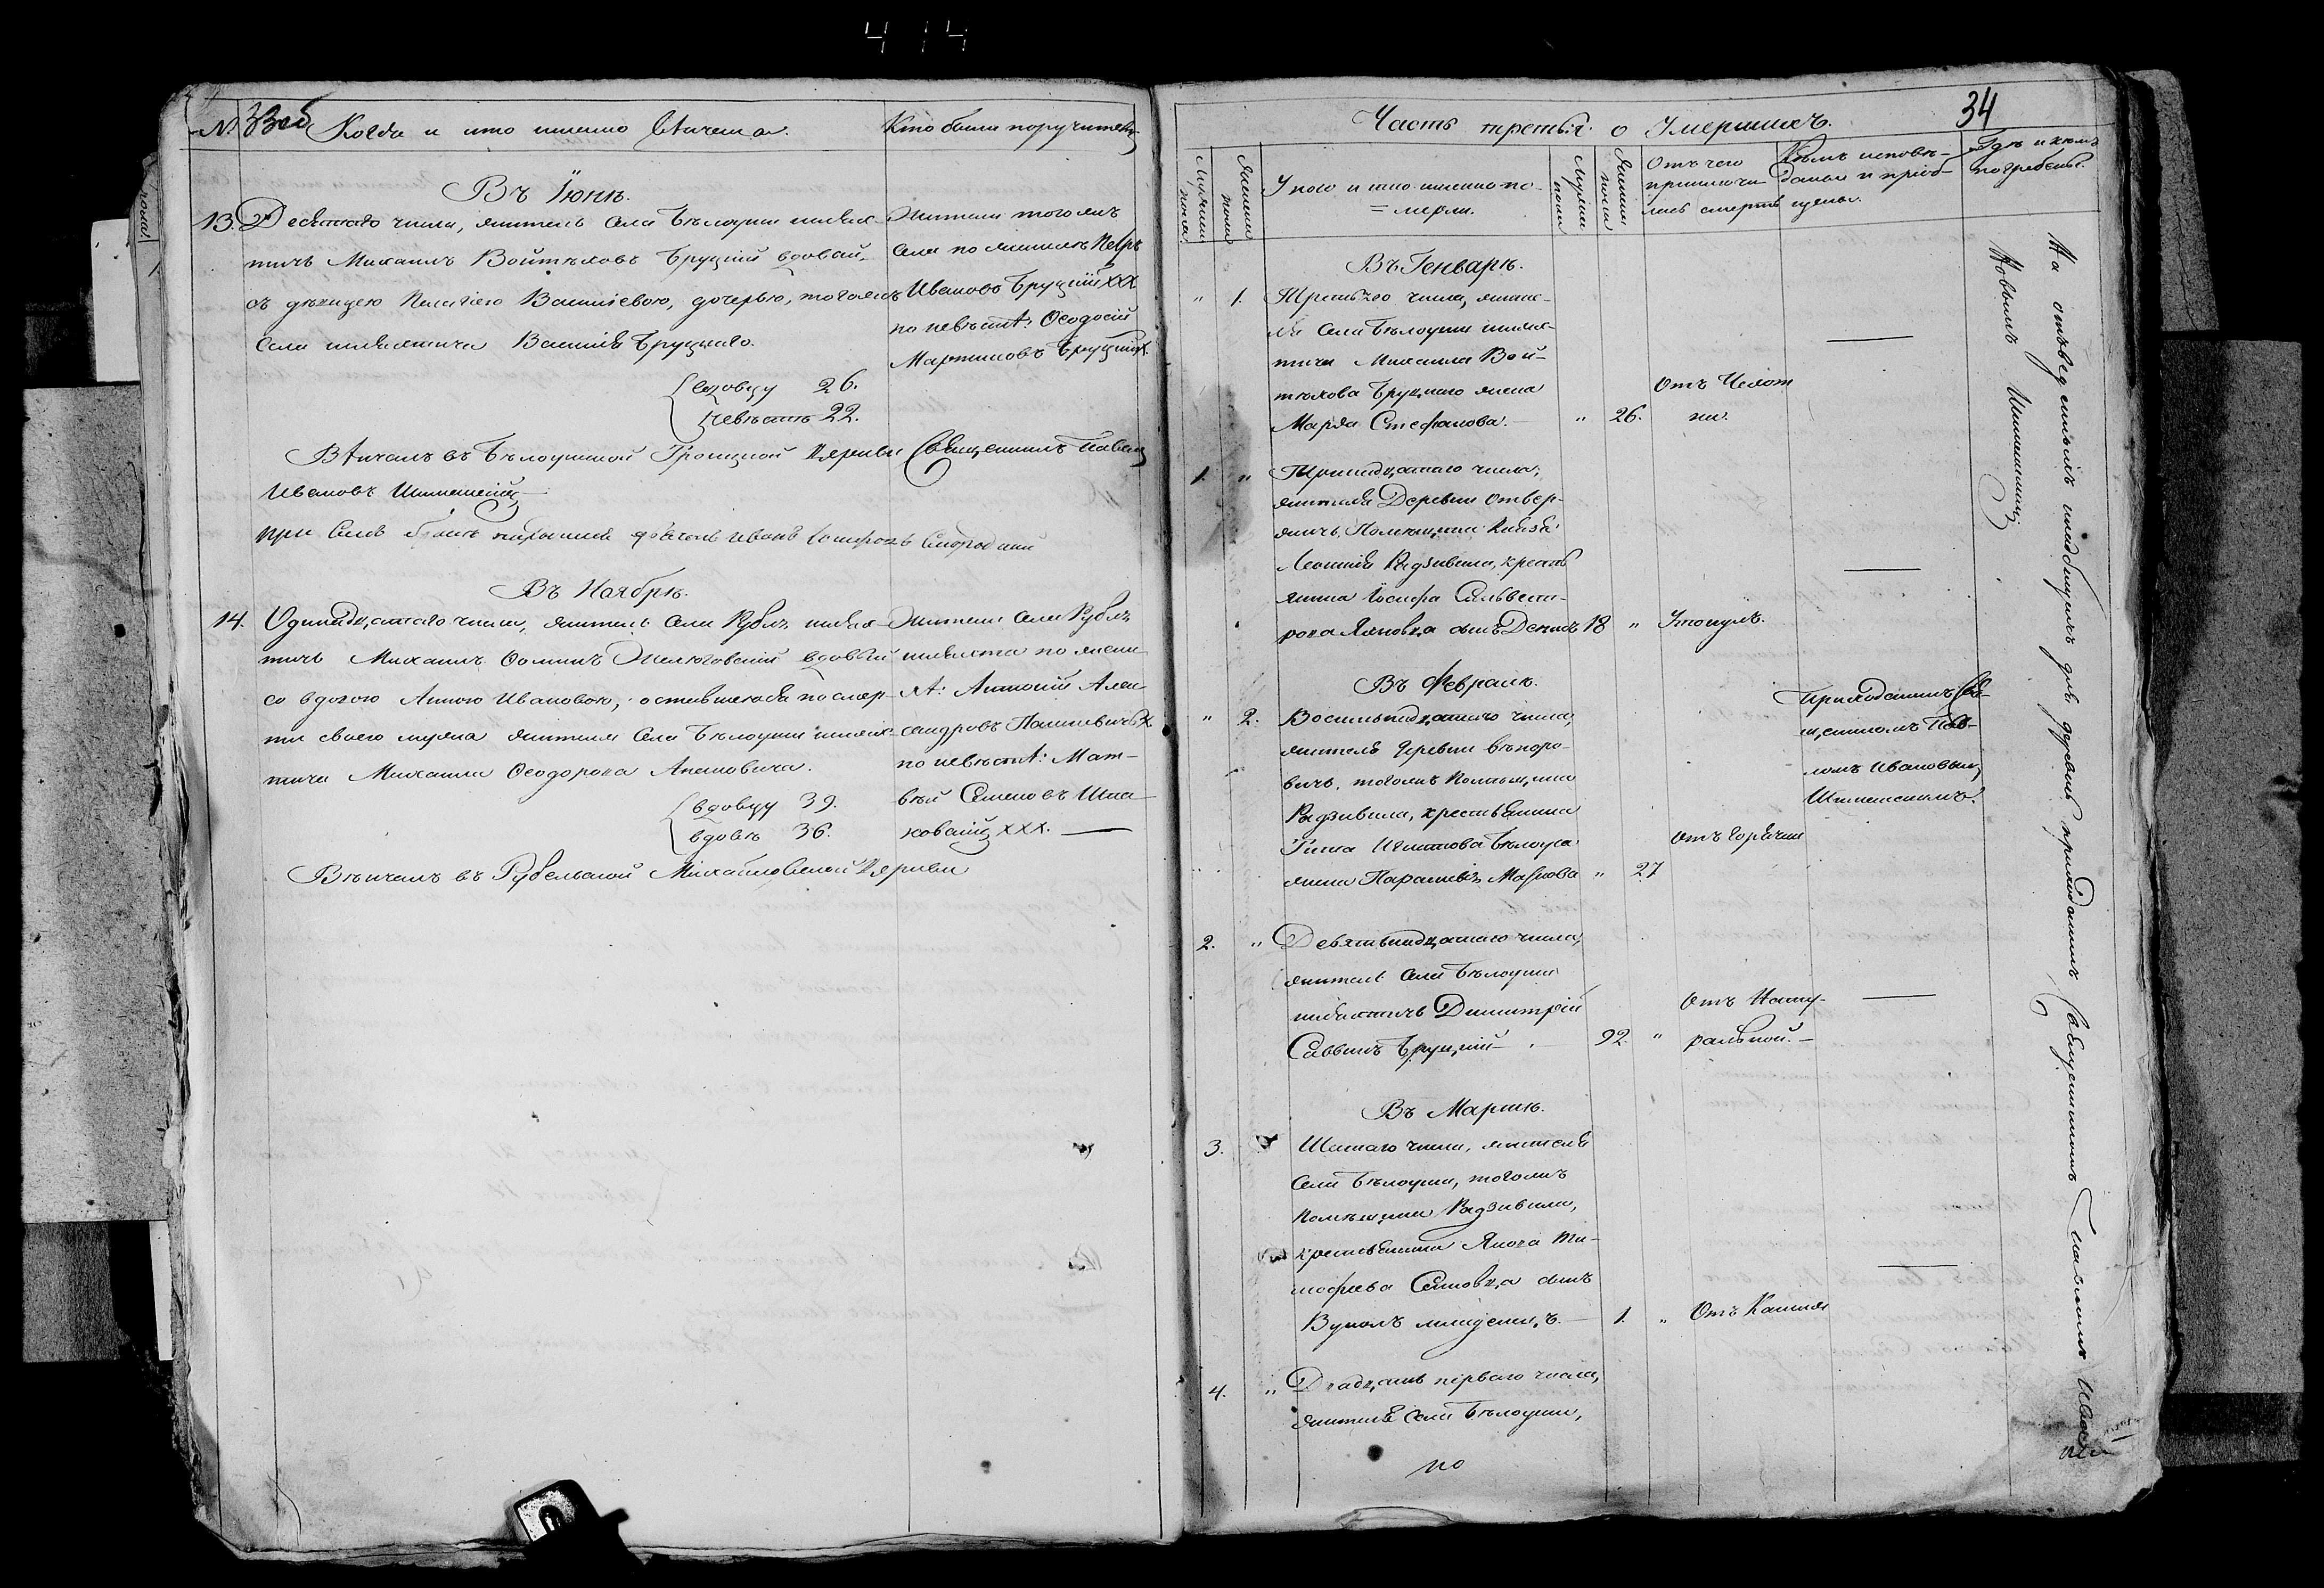 414
№ Когда и кто именно вѣнчанъ. Кто были поручители
Въ Іюнѣ.
13. Десятаго числа, житель Села Бѣлоуши шлях-
тичъ Михаилъ Войтѣховъ Бруцкій вдовый
съ дѣвицею Пелагіею Василіевою, дочерью, тогожъ
Села шляхтича Василія Бруцкаго.
вдовцу 26.
невѣстѣ 22.
Жители тогожъ
Села по женихѣ Петръ
Ивановъ Бруцкій ххх
по невѣстѣ: Ѳеодосій
Мартиновъ Бруцкій
Вѣнчалъ въ Бѣлоушской Троицкой Церкви Священникъ Павелъ
Ивановъ
при Семъ
Въ Ноябрѣ.
14. Одинадцатаго числа, житель Села Рубля шлях-
тичъ Михаилъ Ѳоминъ вдовый
со вдовою Анною Ивановою, оставшеюся по смер-
ти своего мужа жителя Села Бѣлоуши шлях-
тича Михаила Ѳеодорова
вдовцу 39.
вдовѣ 36.
Жители Села Рубля
шляхта по жени-
хѣ: Антоній Алек-
сандровъ Пашкевичъ
по невѣстѣ: Мат-
вѣй Семеновъ
ххх.
Вѣнчалъ въ Рубельской Михайловской Церкви
34
Часть третья о Умершихъ.
Мужеска пола
Женска пола
У кого и кто именно по-
=мерли.
Мужеска пола
Женска пола
Отъ чего
приключи-
лась смерть
Кѣмъ исповѣ-
даны и пріоб-
щены.
Гдѣ и кѣмъ
погребены.
Въ Генварѣ.
" 1. Третьяго числа, жите-
ля Села Бѣлоуши шлях-
тича Михаила Вой-
тѣхова Бруцкаго жена
Марѳа Стефанова. " 26.
Отъ Чехот
ки.
1. " Тринадцатаго числа,
жителя Деревни Отвер-
жичъ, Помѣщика Князя
Леонія Радзивила, кресть
янина Іосифа Сильвест-
рова сынъ Денисъ 18 " Утонулъ.
Въ Февралѣ.
" 2. Восемьнадцатаго числа,
жителя Деревни
вичъ, тогожъ Помѣщика
Радзивила, крестьянина
Игнатова
жена Параскевія " 27
Отъ Горячки
Приходскимъ Свя-
щенникомъ Пав-
ломъ Ивановымъ
2. " Девятьнадцатаго числа,
житель Села Бѣлоуши
шляхтичъ Димитрій
Саввинъ Бруцкій 92. "
Отъ Нату-
ральной.
Въ Мартѣ.
3. Шестаго числа, жителя
Села Бѣлоуши, тогожъ
Помѣщика Радзивила,
крестьянина Якова Ти-
мофеева сынъ
Вуколъ младенецъ. 1. " Отъ Кашля
4. " Двадцать перваго числа,
жителя Села Бѣлоуши,
по
На отведенныхъ кладбищахъ при деревнѣ приходскимъ Священникомъ Павломъ Ива-
новымъ